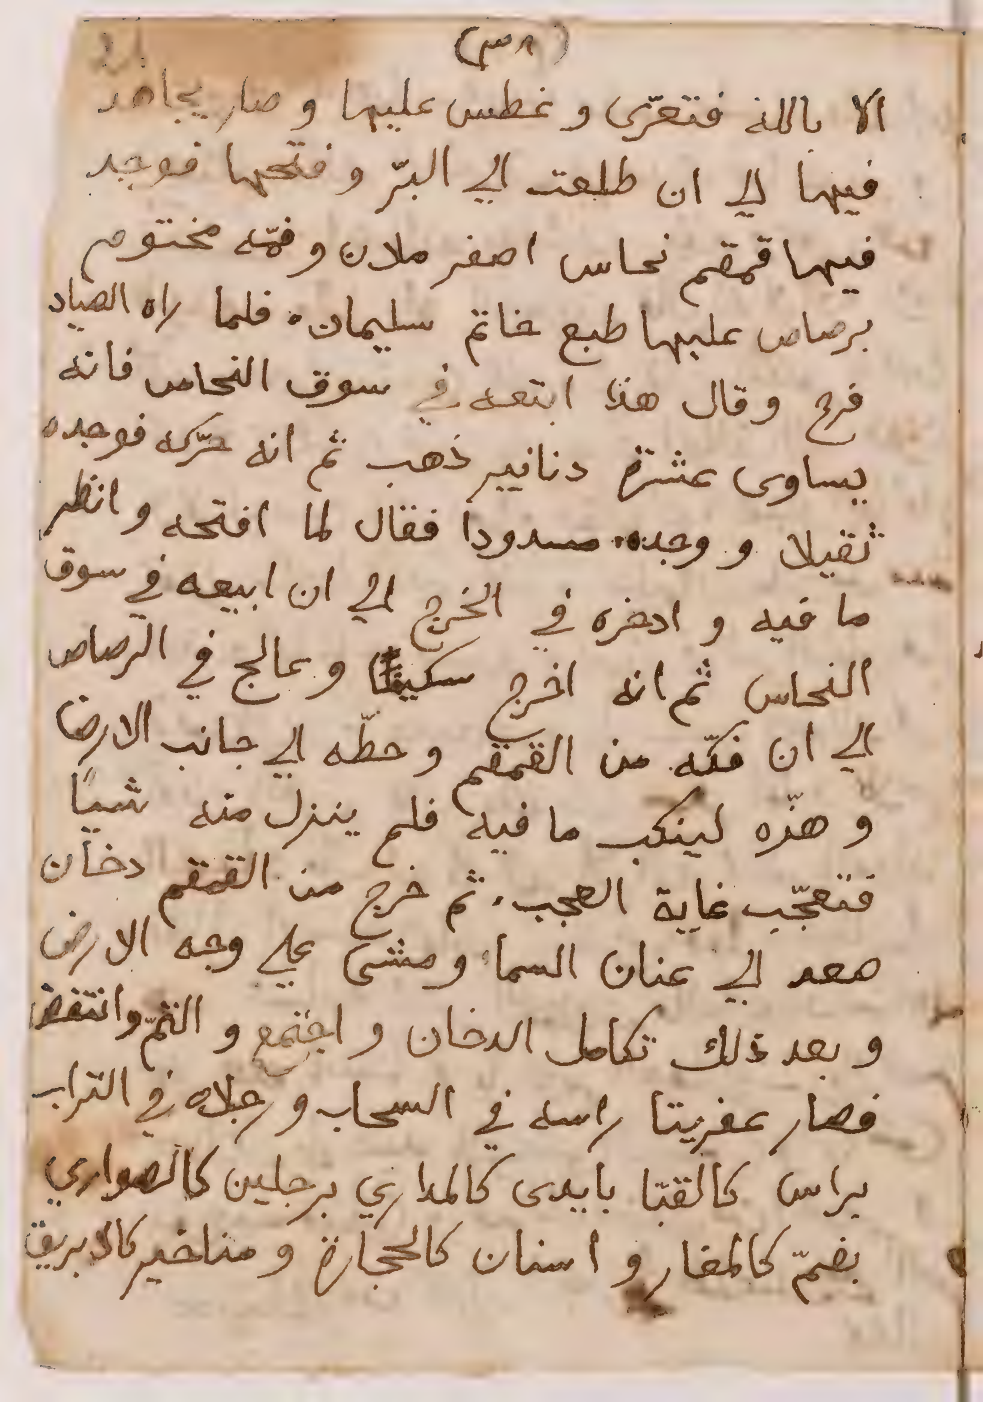 (٣٨)
الا بالله فتعرّى و غطس عليها و صار يجاهد
فيها الي ان طلعت الي البرّ و فتحها فوجد
فيها قمقم نحاس اصفر ملان و فمّه مختوم
برصاص عليها طبع خاتم سليمان. فلما راه الصياد
فرح و قال هذا ابتعه في سوق النحاس فانه
يساوى عشرة دنانير ذهب ثم انه حرّكه فوجده
ثقيلا و وجده مسدودا فقال لما افتحه و انظر
ما فيه و ادخره في الخرج الي ان ابيعه في سوق
النحاس ثم انه اخرج سكينا و عالج في الرصاص
الي ان فكّه من القمقم و حطّه الي جانب الارض
و هزّه لينكب ما فيه فلم ينزل منه شيئًا
فتعجّب غاية العجب. ثم خرج من القمقم دخان
صعد الي عنان السما و مشى علي وجه الارض
و بعد ذلك تكامل الدخان و اجتمع و التمّ وانتفض
فصار عفريتا راسه في السحاب و رجلاه في التراب
براس كالقبا بايدى كالمداري برجلين كالصواري
بفمّ كالمغار و اسنان كالحجارة و مناخير كالابريق